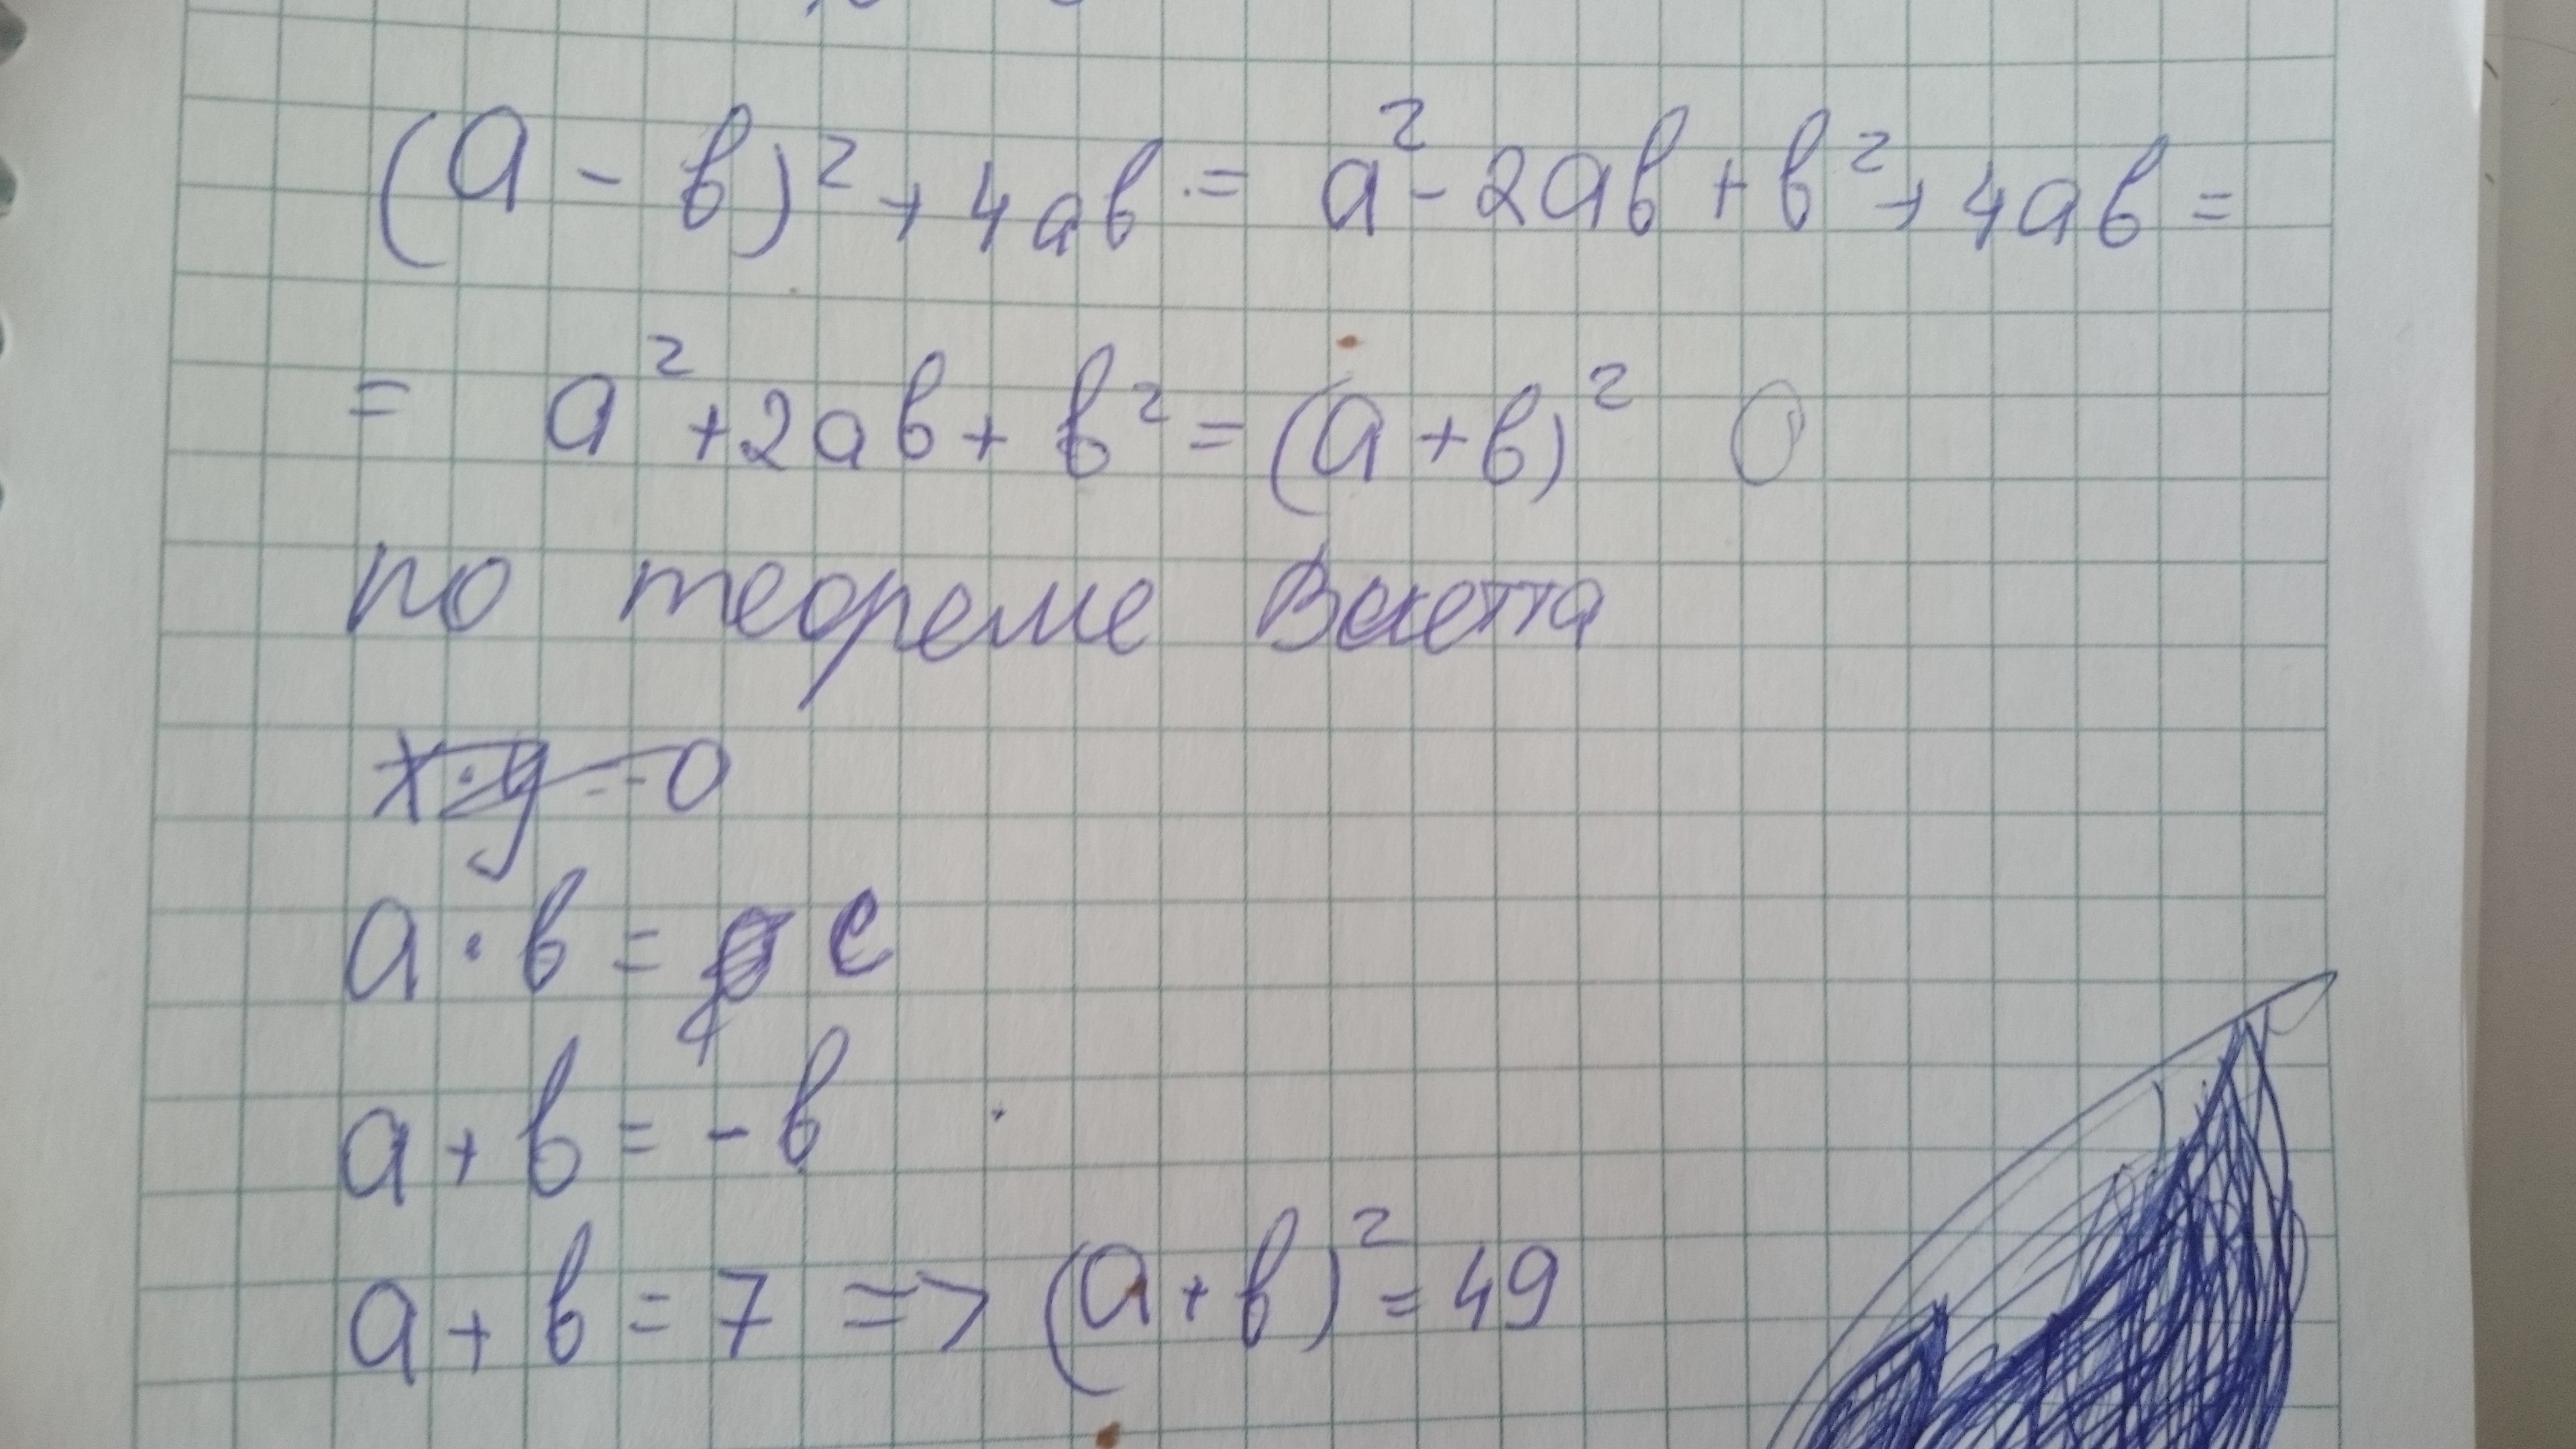 (a - b)² + 4ab = a² - 2ab + b² + 4ab =
= a² + 2ab + b² = (a + b)²
по теореме
x · y = 0
a · b = c
a + b = - b
a + b = 7 => (a + b)² = 49